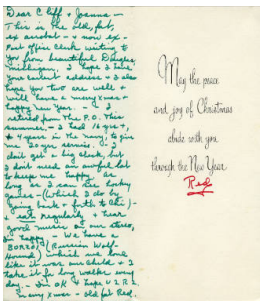 Dear Cliff & Joanna —
This is the old, fat,
ex acrobat — & now ex
Post Office Clerk writing to
you from beautiful Douglas,
Michigan. I hope I have
your current address & I also
hope you two are well &
will have a merry Xmas &
happy new year. I
retired from the P.O. this
summer, — I had 16 yrs +,
+ 4 years in the navy, to give
me 20 yrs service. I
don't get a big check, but
I don't need an awful lot
to keep me happy as
long as I can see hockey
games — (which I do by
going back & forth to this) —
eat regularly & hear
good music on our stereo,
I'm happy — We have a
BORZOI (Russian Wolf-
hound) which we love
like it was our child & I
take it for long walks every
day. — I'm OK & hope U 2 R 2.
Merry Xmas — old fat Red.
May the peace
and joy of Christmas
abide with you
through the New Year
Red